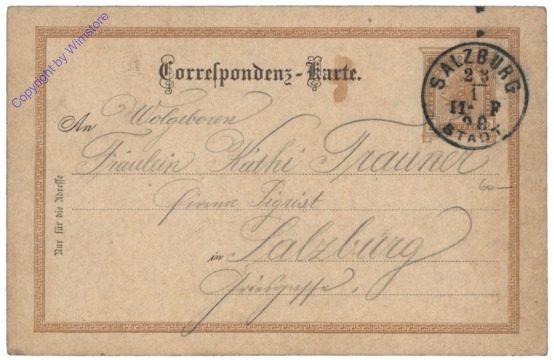 Copyright by Winstore
Correspondenz-Karte.
SALZBURG
23
1
11- F
90
STADT
An Wolgeboren
Fräulein Käthi Trauner
Firma Sigrist
in Salzburg
Griesgasse,
Nur für die Adresse
60